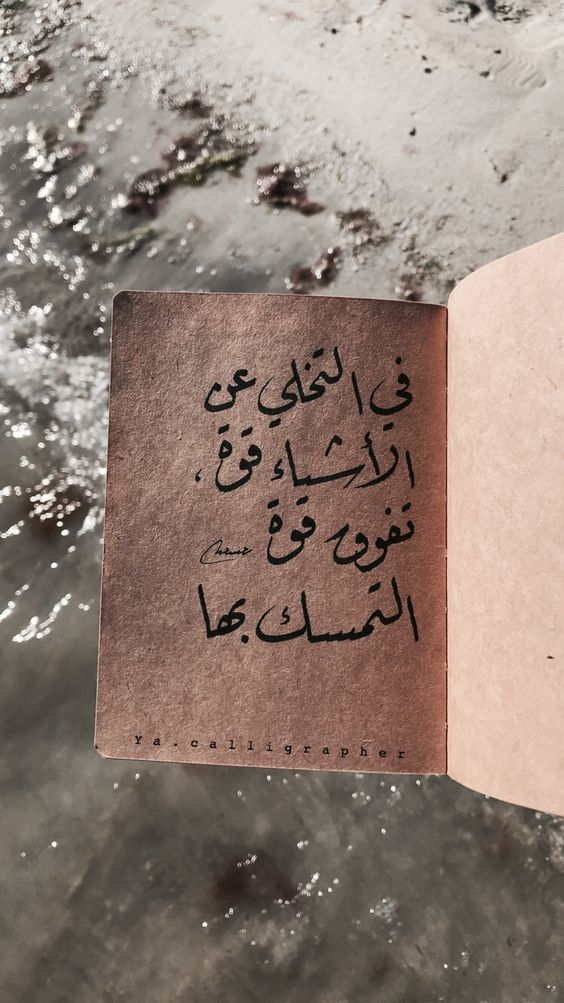 في التخلي عن
الأشياء قوة ،
تفوق قوة
التمسك بها
Ya.calligrapher